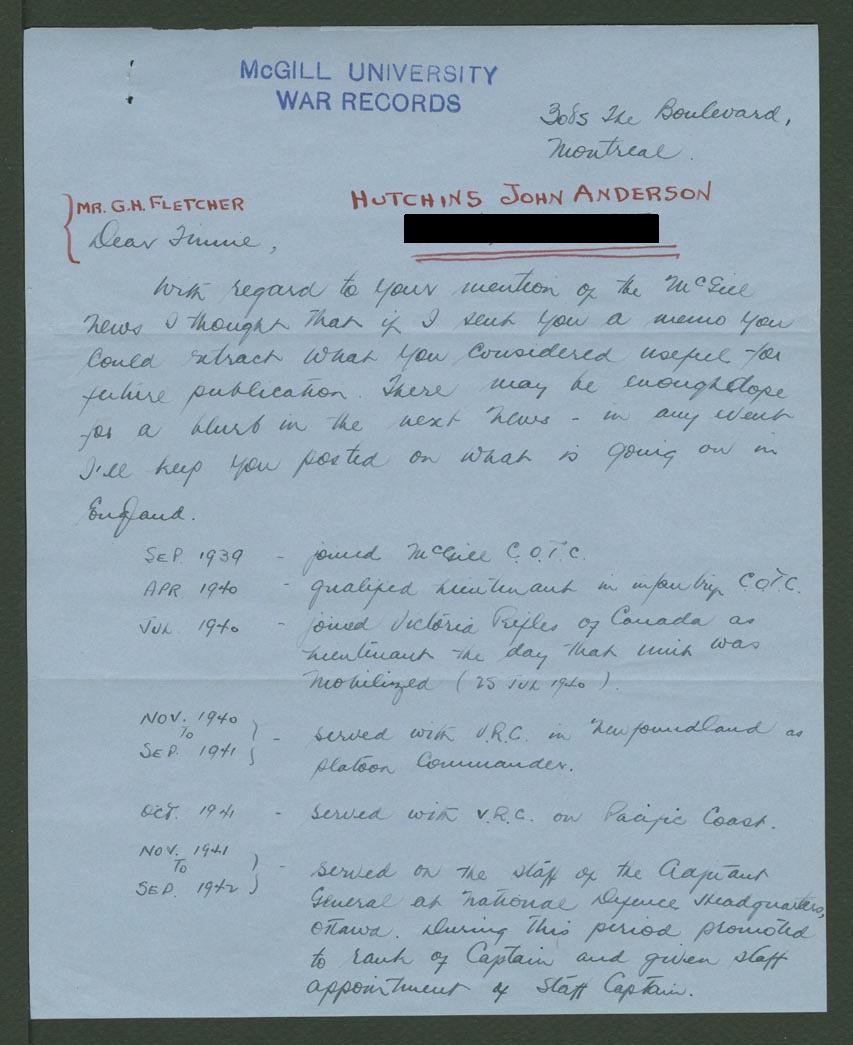 McGILL UNIVERSITY
WAR RECORDS
3085 The Boulevard,
Montreal.
MR. G.H. FLETCHER
HUTCHINS JOHN ANDERSON
Dear Timmie,
With regard to your mention of the McGill
News I thought that if I sent you a memo you
could extract what you considered useful for
future publication. There may be enough dope
for a blurb in the next News - in any event
I'll keep you posted on what is going on in
England.
SEP. 1939 - joined McGill C.O.T.C.
APR 1940 - qualified Lieutenant in infantry C.O.T.C.
JUL 1940 - joined Victoria Rifles of Canada as
Lieutenant the day that unit was
mobilized (25 JUL 1940).
NOV. 1940
TO
SEP. 1941 } - served with V.R.C. in Newfoundland as
platoon Commander.
OCT. 1941 - served with V.R.C. on Pacific Coast.
NOV. 1941
TO
SEP. 1942 } - served on the staff of the Adjutant
General at National Defence Headquarters,
Ottawa. During this period promoted
to rank of Captain and given staff
appointment of Staff Captain.